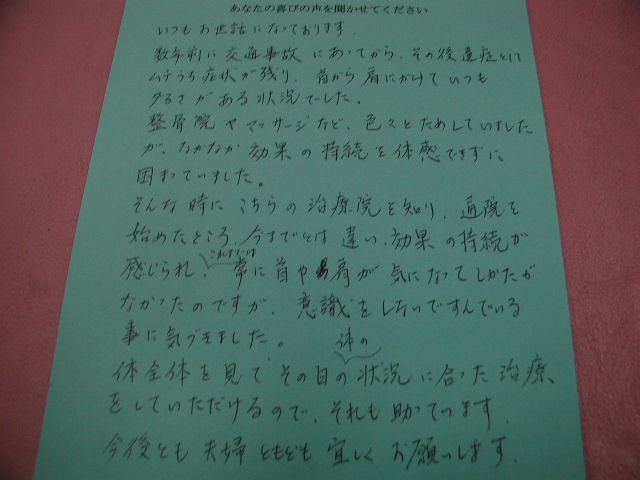 あなたの喜びの声を聞かせてください
いつもお世話になっております。
数年前に交通事故にあってから、その後遺症とは
ムチうち症状が残り、首から肩にかけていつも
ダルさがある状況でした。
整骨院やマッサージなど、色々とためしていました
が、なかなか効果の持続を体感できずに
困まっていました。
そんな時にこちらの治療院を知り、通院を
始めたところ、今までとは違い、効果の持続が
これまでは
感じられ、常に首や肩が気になってしかたが
なかったのですが、意識をしないですんでいる
事に気づきました。
体の
体全体を見てその日の状況に合った治療、
をしていただけるので、それも助かています。
今後とも夫婦ともども宜しくお願いします。